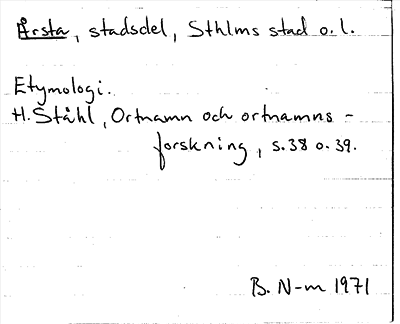 Årsta, stadsdel, Sthlms stad o. l.
Etymologi.
H. Ståhl, Ortnamn och ortnamns-
forskning, s. 38 o. 39.
B. N-m 1971